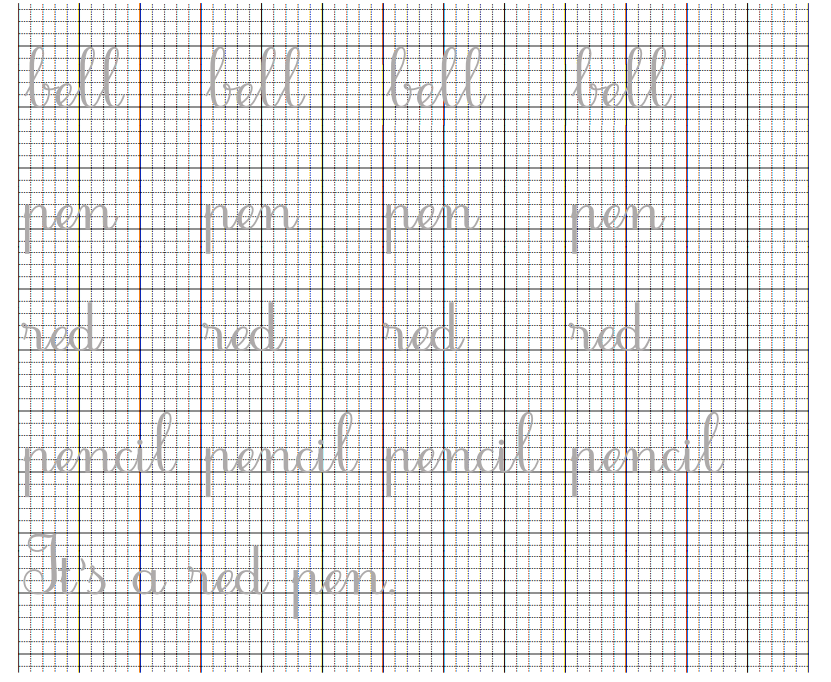 bell bell bell bell
pen pen pen pen
red red red red
pencil pencil pencil pencil
It's a red pen.